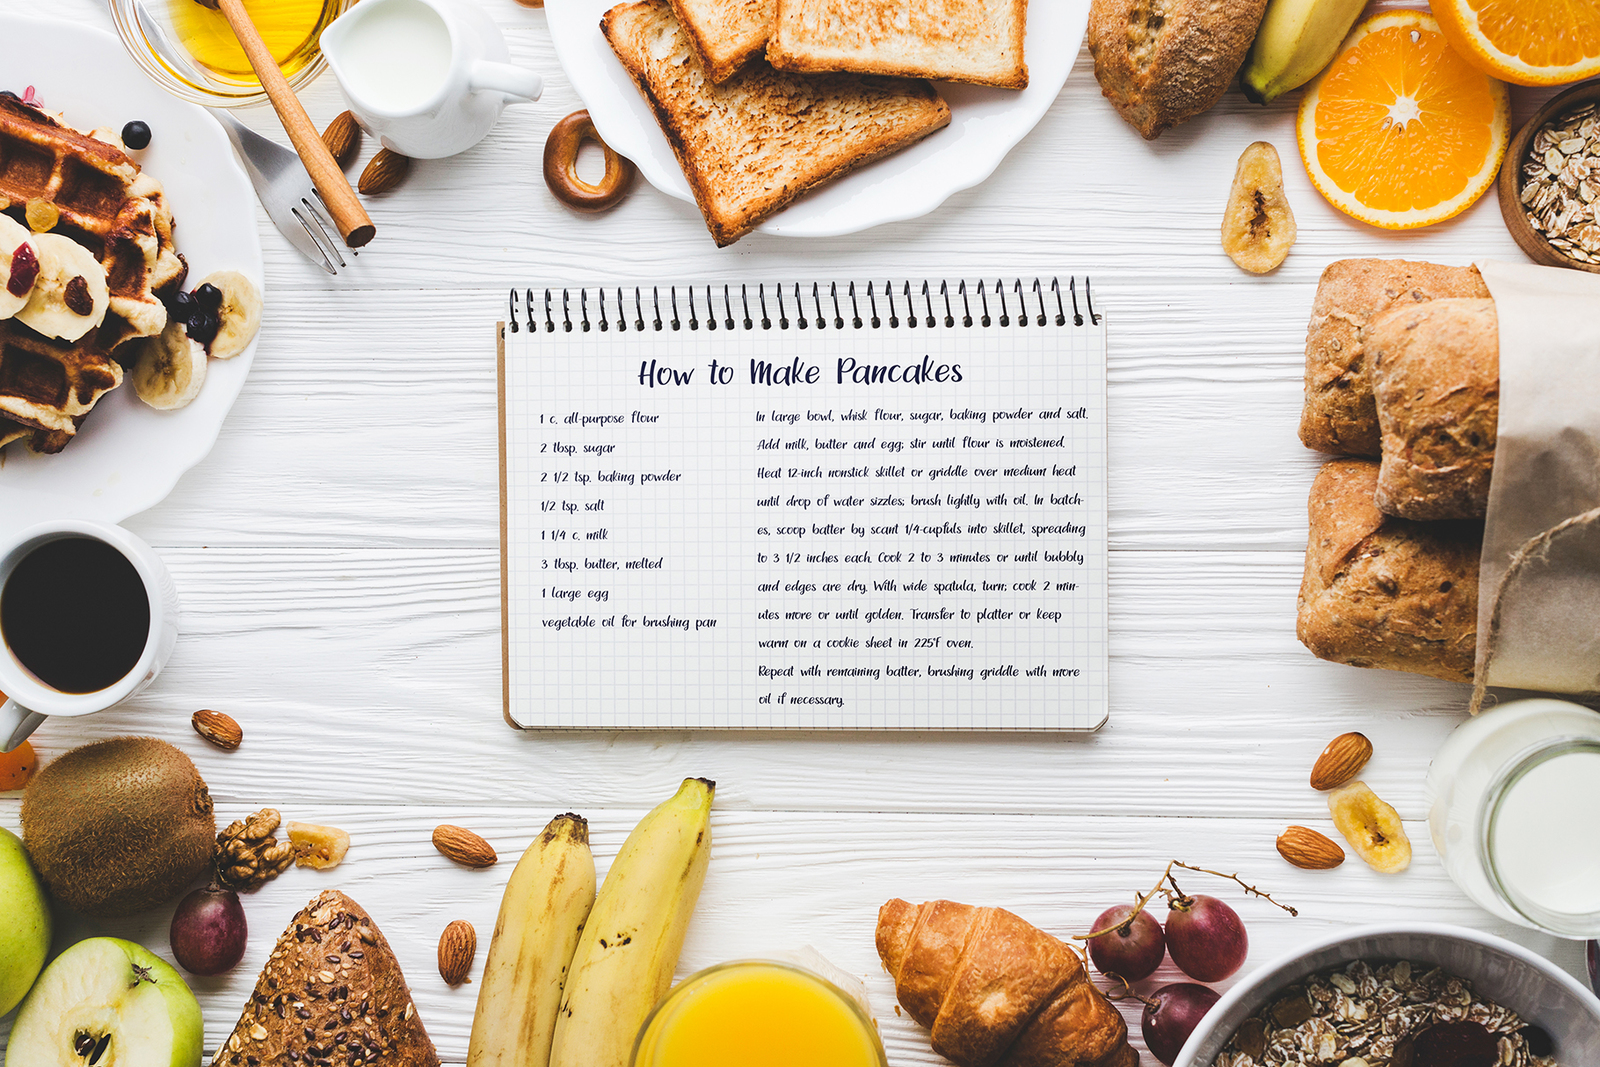 How to Make Pancakes
1 c. all-purpose flour
2 tbsp. sugar
2 1/2 tsp. baking powder
1/2 tsp. salt
1 1/4 c. milk
3 tbsp. butter, melted
1 large egg
vegetable oil for brushing pan
In large bowl, whisk flour, sugar, baking powder and salt.
Add milk, butter and egg; stir until flour is moistened.
Heat 12-inch nonstick skillet or griddle over medium heat
until drop of water sizzles; brush lightly with oil. In batch-
es, scoop batter by scant 1/4-cupfuls into skillet, spreading
to 3 1/2 inches each. Cook 2 to 3 minutes or until bubbly
and edges are dry. With wide spatula, turn; cook 2 min-
utes more or until golden. Transfer to platter or keep
warm on a cookie sheet in 225°F oven.
Repeat with remaining batter, brushing griddle with more
oil if necessary.